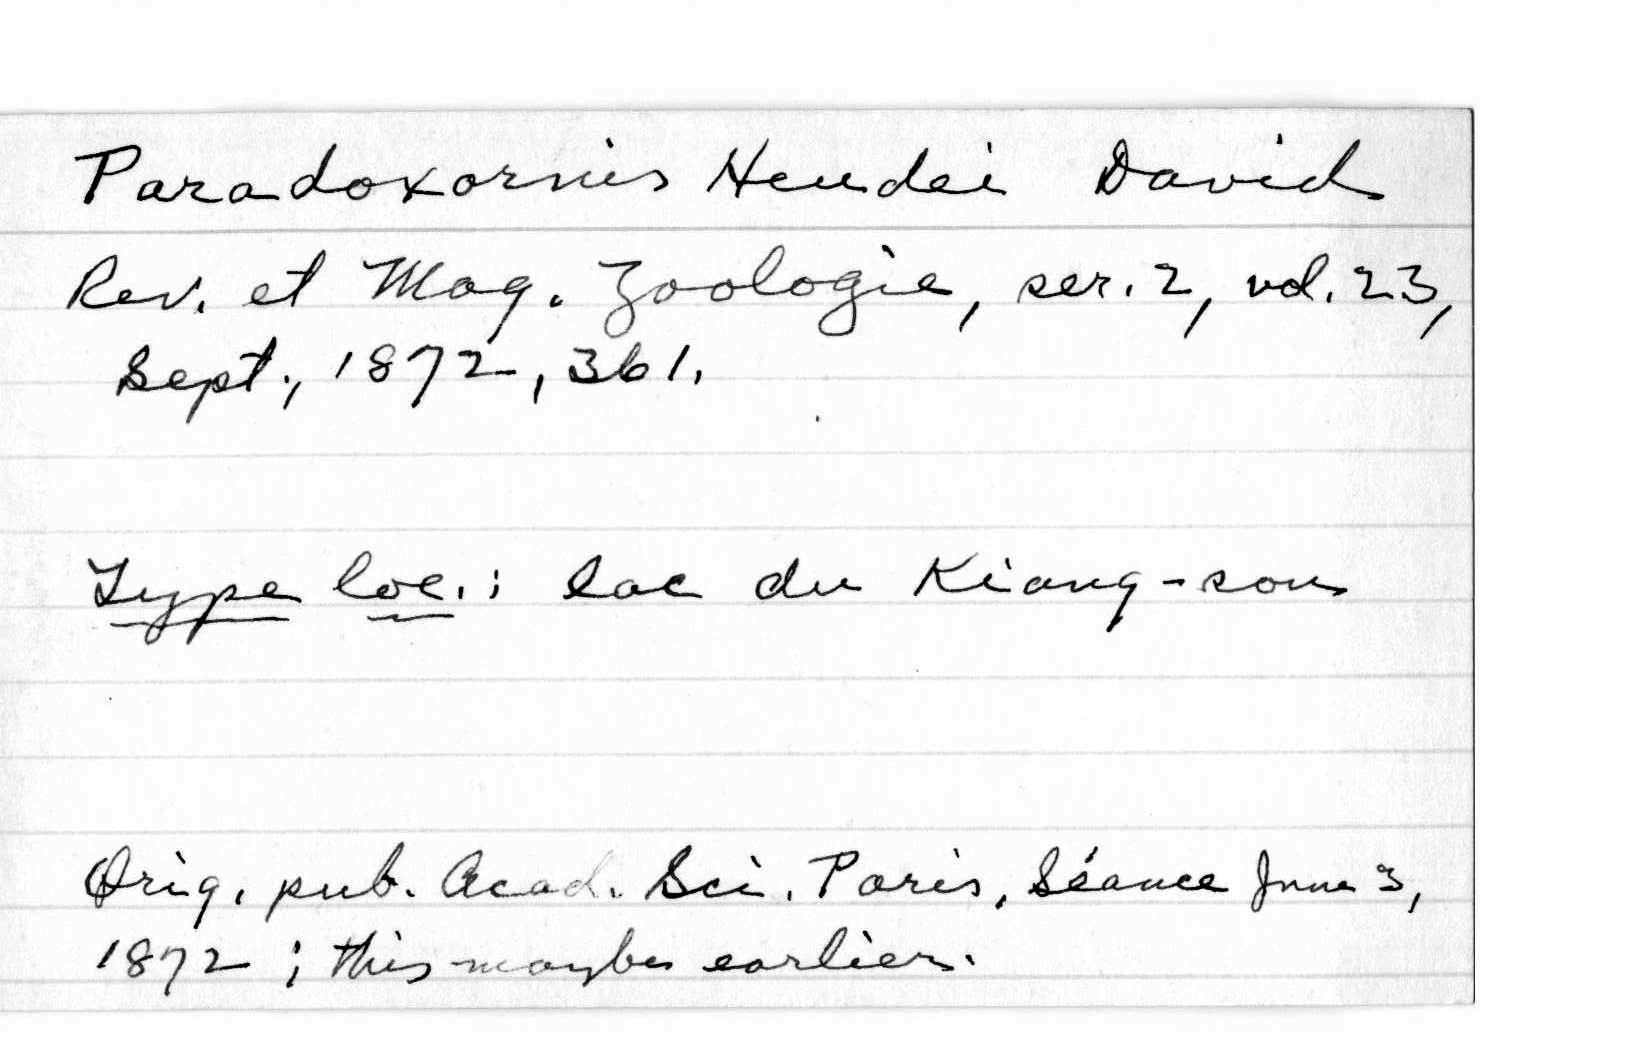 Paradoxornis Heudei David
Rev. et Mag. Zoologie, ser. 2, vol. 23,
Sept., 1872, 361.
Type loc.: lac du Kiang-sou
Orig. pub. Acad. Sci. Paris, Séance June 3,
1872; this maybe earlier.